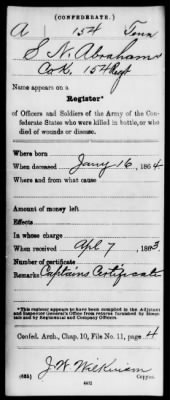 (CONFEDERATE.)
A 154 Tenn
S. N. Abraham
Co K, 154 Regt
Name appears on a
Register*
of Officers and Soldiers of the Army of the Con-
federate States who were killed in battle, or who
died of wounds or disease.
Where born
When deceased Jany 16, 1864
Where and from what cause
Amount of money left
Effects
In whose charge
When received Apl 7, 1863
Number of certificate
Remarks Captains Certificate
*This register appears to have been compiled in the Adjutant
and Inspector General's Office from returns furnished by Hospi-
tals and by Regimental and Company Officers.
Confed. Arch., Chap. 10, File No. 11, page 4
J. W. Wilkinson
(635) Copyist.